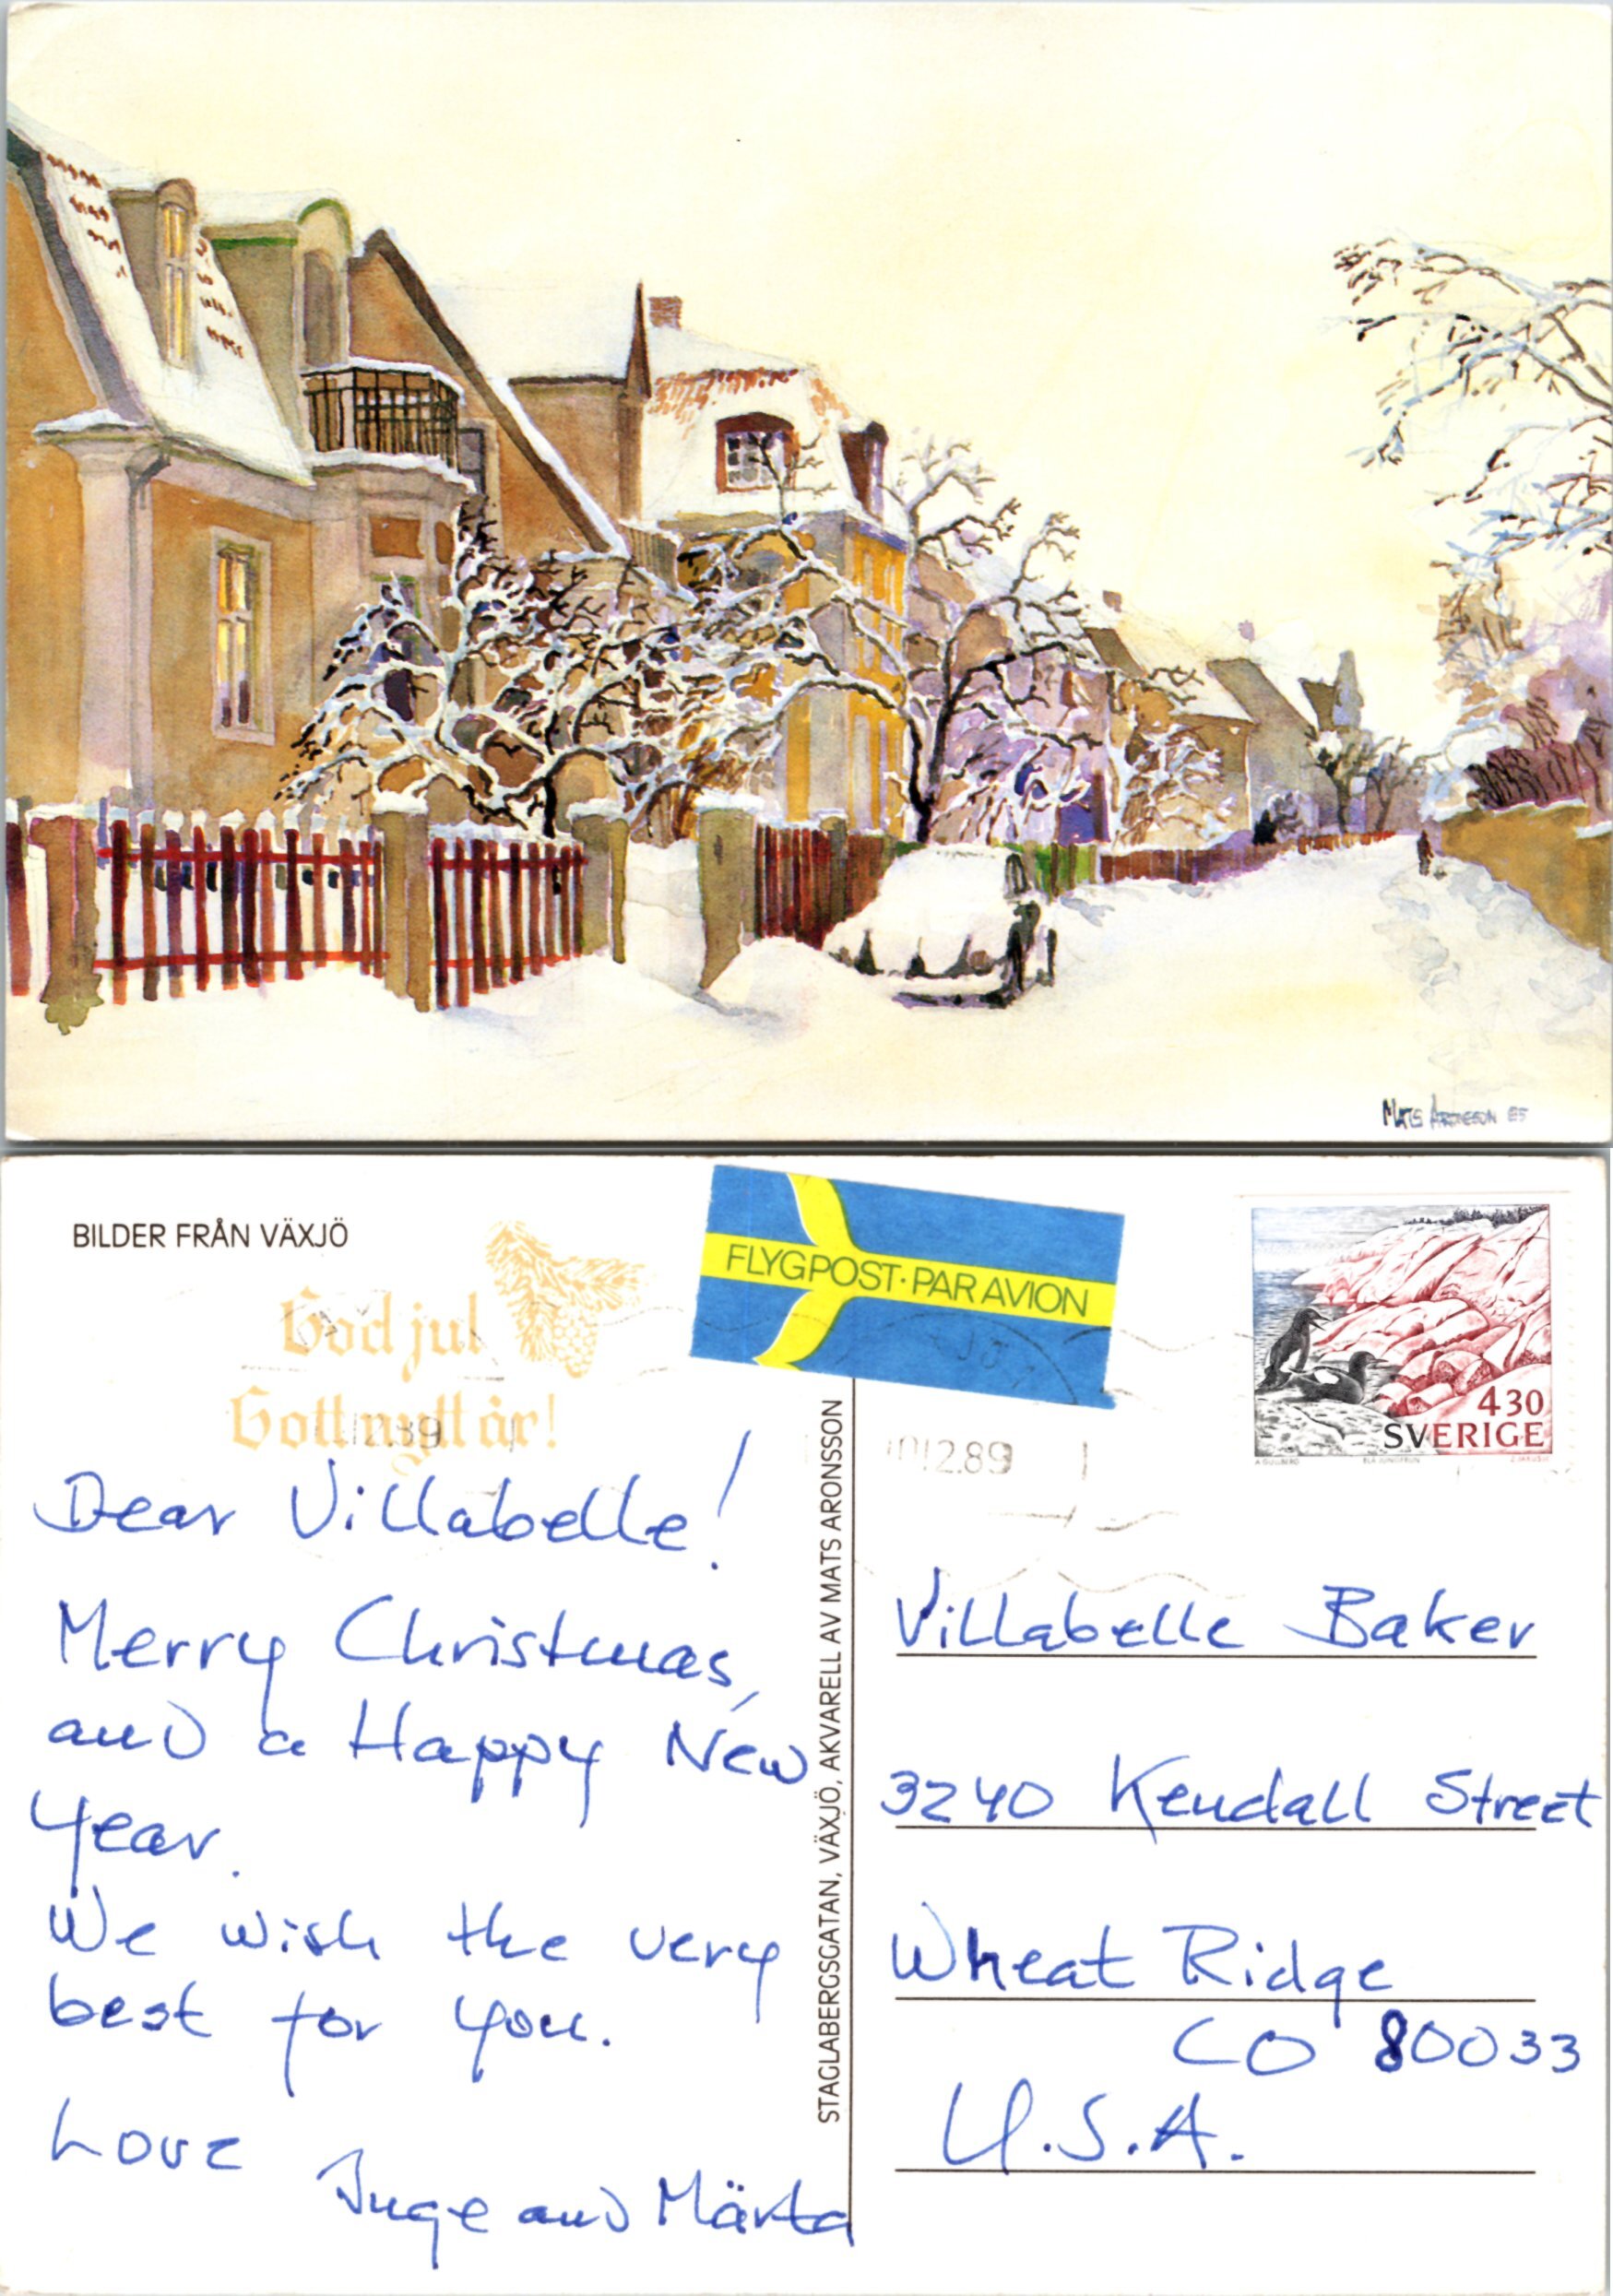 MATS ARONSSON 85
BILDER FRÅN VÄXJÖ
God jul
Gott nytt år!
FLYGPOST·PAR AVION
430
SVERIGE
12.89
12.89
Dear Villabelle!
Merry Christmas,
and a Happy New
Year.
We wish the very
best for you.
Love
Inge and Märta
STAGLABERGSGATAN, VÄXJÖ, AKVARELL AV MATS ARONSSON
Villabelle Baker
3240 Kendall Street
Wheat Ridge
CO 80033
U.S.A.